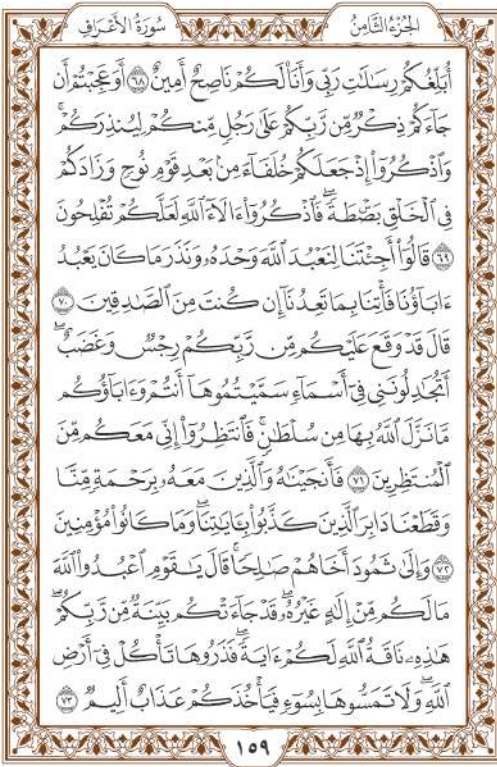 الجُزْءُ الثَّامِنُ
سُورَةُ الأَعْرَافِ
أُبَلِّغُكُمْ رِسَٰلَٰتِ رَبِّي وَأَنَا۠ لَكُمْ نَاصِحٌ أَمِينٌ ۝٦٨ أَوَعَجِبْتُمْ أَن
جَآءَكُمْ ذِكْرٌ مِّن رَّبِّكُمْ عَلَىٰ رَجُلٍ مِّنكُمْ لِيُنذِرَكُمْ ۚ
وَٱذْكُرُوٓا۟ إِذْ جَعَلَكُمْ خُلَفَآءَ مِنۢ بَعْدِ قَوْمِ نُوحٍ وَزَادَكُمْ
فِي ٱلْخَلْقِ بَصْۜطَةً ۖ فَٱذْكُرُوٓا۟ ءَالَآءَ ٱللَّهِ لَعَلَّكُمْ تُفْلِحُونَ
۝٦٩ قَالُوٓا۟ أَجِئْتَنَا لِنَعْبُدَ ٱللَّهَ وَحْدَهُۥ وَنَذَرَ مَا كَانَ يَعْبُدُ
ءَابَآؤُنَا فَأْتِنَا بِمَا تَعِدُنَآ إِن كُنتَ مِنَ ٱلصَّٰدِقِينَ ۝٧٠
قَالَ قَدْ وَقَعَ عَلَيْكُم مِّن رَّبِّكُمْ رِجْسٌ وَغَضَبٌ ۖ
أَتُجَٰدِلُونَنِي فِيٓ أَسْمَآءٍ سَمَّيْتُمُوهَآ أَنتُمْ وَءَابَآؤُكُم
مَّا نَزَّلَ ٱللَّهُ بِهَا مِن سُلْطَٰنٍ ۚ فَٱنتَظِرُوٓا۟ إِنِّي مَعَكُم مِّنَ
ٱلْمُنتَظِرِينَ ۝٧١ فَأَنجَيْنَٰهُ وَٱلَّذِينَ مَعَهُۥ بِرَحْمَةٍ مِّنَّا
وَقَطَعْنَا دَابِرَ ٱلَّذِينَ كَذَّبُوا۟ بِـَٔايَٰتِنَا ۖ وَمَا كَانُوا۟ مُؤْمِنِينَ
۝٧٢ وَإِلَىٰ ثَمُودَ أَخَاهُمْ صَٰلِحًا ۗ قَالَ يَٰقَوْمِ ٱعْبُدُوا۟ ٱللَّهَ
مَا لَكُم مِّنْ إِلَٰهٍ غَيْرُهُۥ ۖ قَدْ جَآءَتْكُم بَيِّنَةٌ مِّن رَّبِّكُمْ ۖ
هَٰذِهِۦ نَاقَةُ ٱللَّهِ لَكُمْ ءَايَةً ۖ فَذَرُوهَا تَأْكُلْ فِيٓ أَرْضِ
ٱللَّهِ ۖ وَلَا تَمَسُّوهَا بِسُوٓءٍ فَيَأْخُذَكُمْ عَذَابٌ أَلِيمٌ ۝٧٣
١٥٩